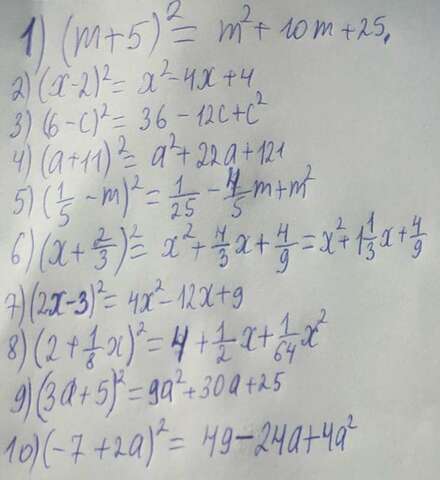 1) (m+5)² = m² + 10m + 25.
2) (x-2)² = x² - 4x + 4
3) (6-c)² = 36 - 12c + c²
4) (a+11)² = a² + 22a + 121
5) (1/5 - m)² = 1/25 - 4/5 m + m²
6) (x + 2/3)² = x² + 4/3 x + 4/9 = x² + 1 1/3 x + 4/9
7) (2x-3)² = 4x² - 12x + 9
8) (2 + 1/8 x)² = 4 + 1/2 x + 1/64 x²
9) (3a+5)² = 9a² + 30a + 25
10) (-7 + 2a)² = 49 - 24a + 4a²